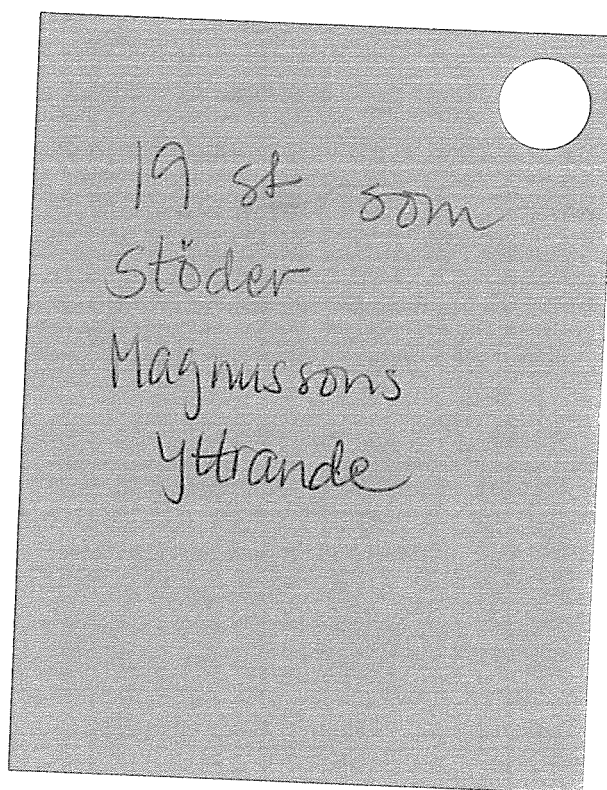 19 st som
Stöder
Magnussons
yttrande